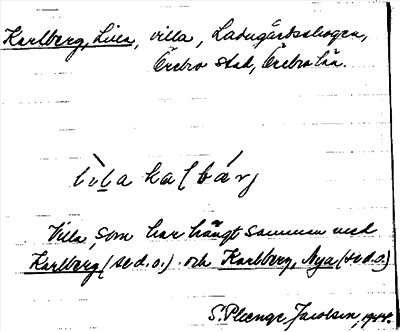 Karlberg, Lilla, villa, Ladugårdsskogen,
Örebro stad, Örebro län.
Villa, som har hängt samman med
Karlberg (se d.o.) och Karlberg, Nya (se d.o.)
S. Plenge Jacobsen, 1944.